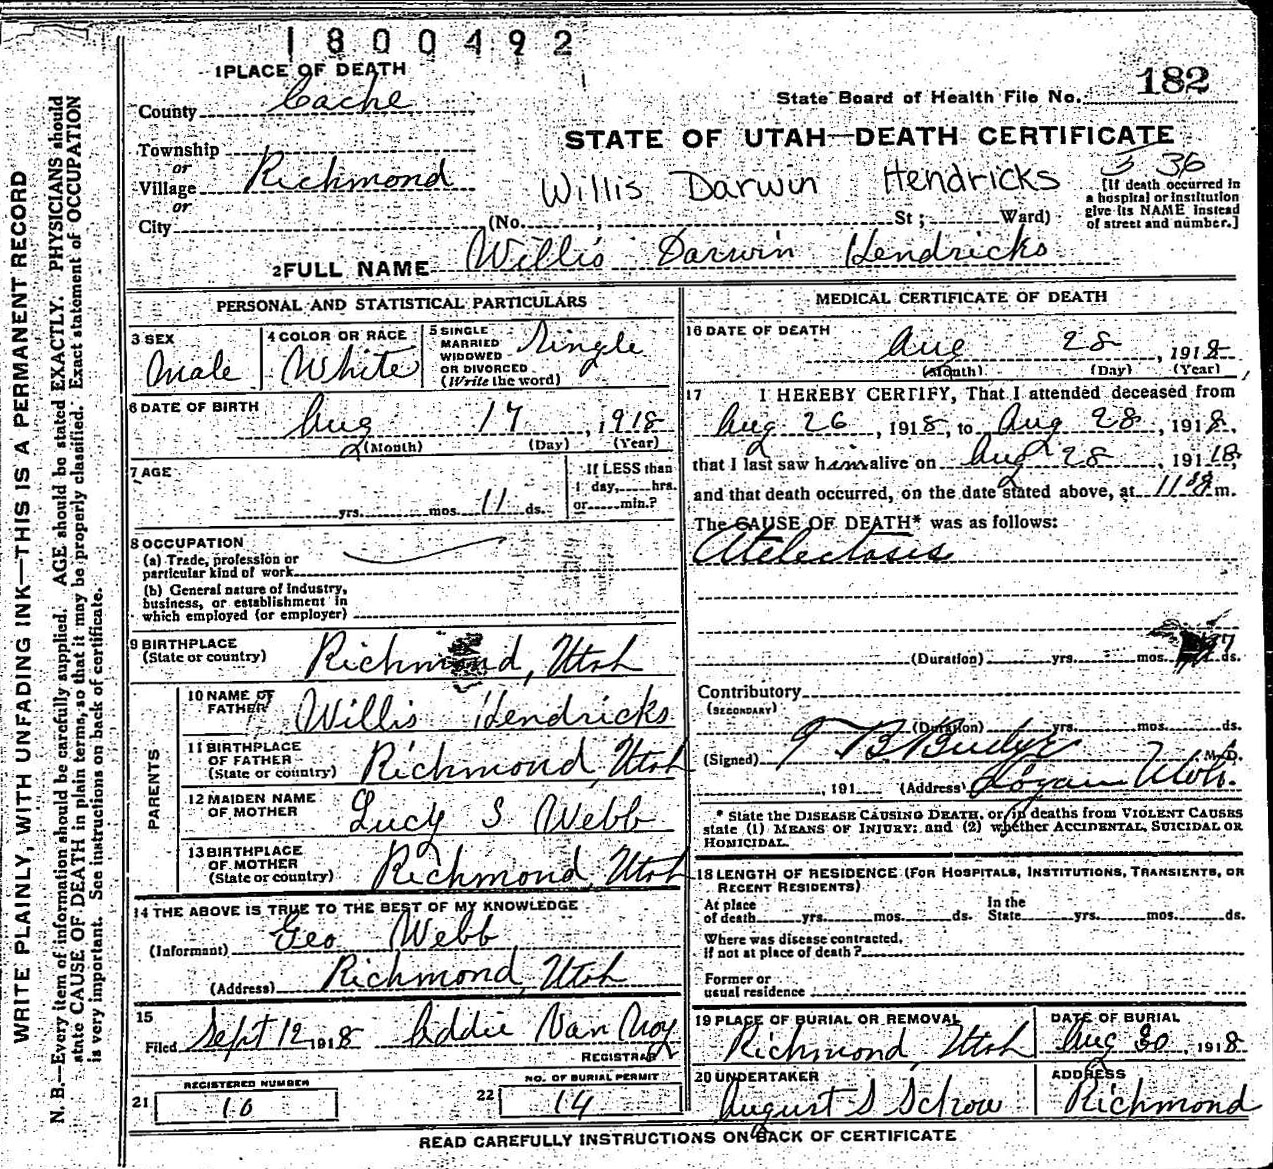 1800492
1 PLACE OF DEATH
County Cache
State Board of Health File No. 182
Township
or
Village Richmond
or
City
STATE OF UTAH—DEATH CERTIFICATE
5 36
Willis Darwin Hendricks
(No. ; St ; Ward)
[If death occurred in
a hospital or institution
give its NAME instead
of street and number.]
2 FULL NAME Willis Darwin Hendricks
PERSONAL AND STATISTICAL PARTICULARS
3 SEX
Male
4 COLOR OR RACE
White
5 SINGLE
MARRIED
WIDOWED
OR DIVORCED
(Write the word)
Single
6 DATE OF BIRTH
Aug 17, 1918
(Month) (Day) (Year)
7 AGE
yrs. mos. 11 ds.
If LESS than
1 day, hrs.
or min.?
8 OCCUPATION
(a) Trade, profession or
particular kind of work
(b) General nature of industry,
business, or establishment in
which employed (or employer)
9 BIRTHPLACE
(State or country) Richmond, Utah
PARENTS
10 NAME OF
FATHER Willis Hendricks
11 BIRTHPLACE
OF FATHER
(State or country) Richmond, Utah
12 MAIDEN NAME
OF MOTHER Lucy S Webb
13 BIRTHPLACE
OF MOTHER
(State or country) Richmond, Utah
14 THE ABOVE IS TRUE TO THE BEST OF MY KNOWLEDGE
(Informant) Geo Webb
(Address) Richmond, Utah
15
Filed Sept 12 1918 Addie Van Noy
REGISTRAR
REGISTERED NUMBER
21 10
NO. OF BURIAL PERMIT
22 14
MEDICAL CERTIFICATE OF DEATH
16 DATE OF DEATH
Aug 28, 1918
(Month) (Day) (Year)
17 I HEREBY CERTIFY, That I attended deceased from
Aug 26, 1918, to Aug 28, 1918,
that I last saw him alive on Aug 28, 191 18,
and that death occurred, on the date stated above, at 11 m.
The CAUSE OF DEATH* was as follows:
Atelectasis
(Duration) yrs. mos. ds.
Contributory
(SECONDARY)
(Duration) yrs. mos. ds.
(Signed) T B Budge M.D.
, 191 (Address) Logan Utah.
* State the DISEASE CAUSING DEATH, or, in deaths from VIOLENT CAUSES
state (1) MEANS OF INJURY; and (2) whether ACCIDENTAL, SUICIDAL OR
HOMICIDAL.
18 LENGTH OF RESIDENCE (FOR HOSPITALS, INSTITUTIONS, TRANSIENTS, OR
RECENT RESIDENTS)
At place
of death yrs. mos. ds.
In the
State yrs. mos. ds.
Where was disease contracted,
if not at place of death?
Former or
usual residence
19 PLACE OF BURIAL OR REMOVAL
Richmond, Utah
DATE OF BURIAL
Aug 30, 1918
20 UNDERTAKER
August S Schow
ADDRESS
Richmond
READ CAREFULLY INSTRUCTIONS ON BACK OF CERTIFICATE
WRITE PLAINLY, WITH UNFADING INK—THIS IS A PERMANENT RECORD
N. B.—Every item of information should be carefully supplied. AGE should be stated EXACTLY. PHYSICIANS should
state CAUSE OF DEATH in plain terms, so that it may be properly classified. Exact statement of OCCUPATION
is very important. See instructions on back of certificate.